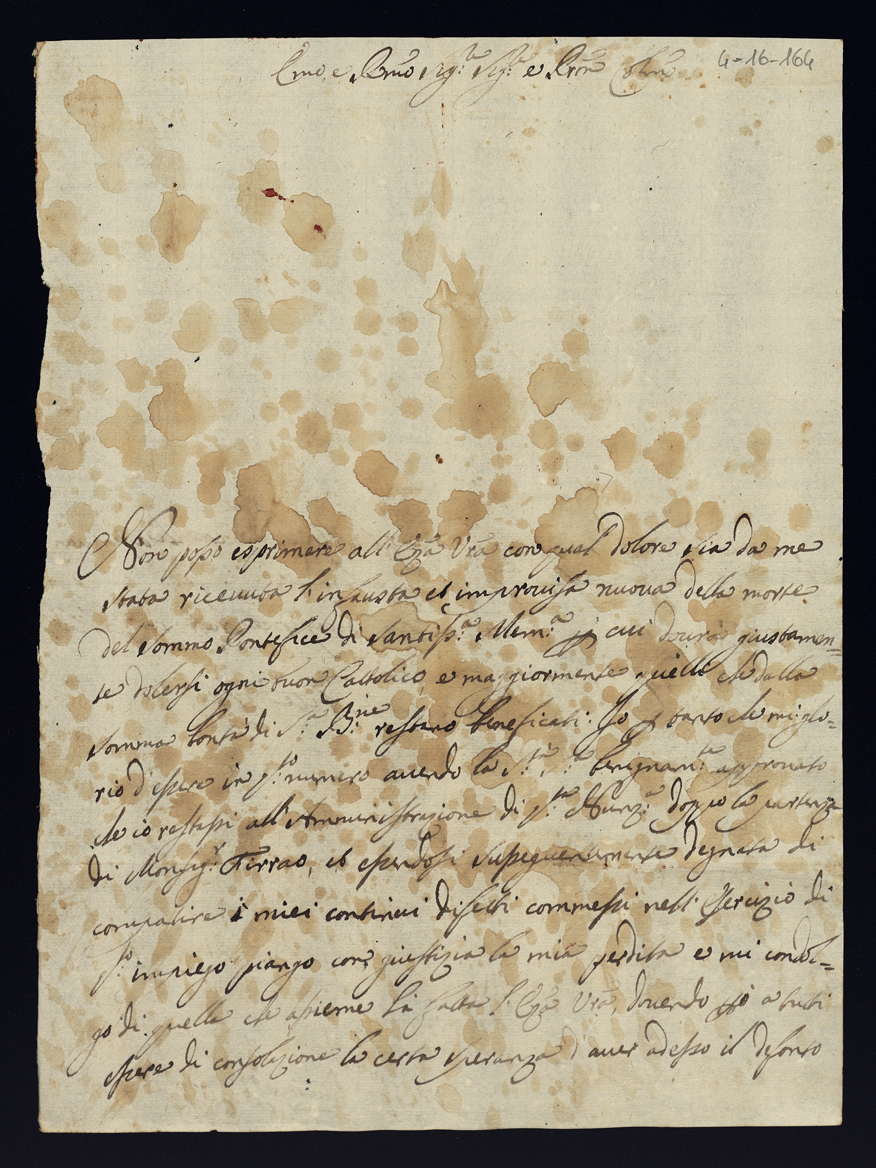 Emo, e Rmo Sig:r Sig:r e Pron Colmo
4-16-164
Non posso esprimere all' Emza Vra con qual' dolore sia da me
stata ricevuta l'infausta et improvisa nuova della morte
del sommo Pontefice di Santiss:a Mem:a p cui dovria giustamen=
te dolersi ogni buon Cattolico, e maggiormente quelli che dalla
somma bontà di S:a B:ne restano beneficati: Io p tanto che mi glo=
rio d'essere in q:to numero avendo la S:tà S:a benignam:te approvato
che io restassi all'Amministrazione di q:ta Nunz:a doppo la partenza
di Monsig:r Firrao, et essendosi susseguentemente degnata di
compatire i miei continui difetti commessi nell' Esercizio di
q:to impiego piango con giustizia la mia perdita e mi condol=
go di quella che assieme hà fatta l'Emza Vra, dovendo però a tutti
essere di consolazione la certa speranza d'aver adesso il defonto